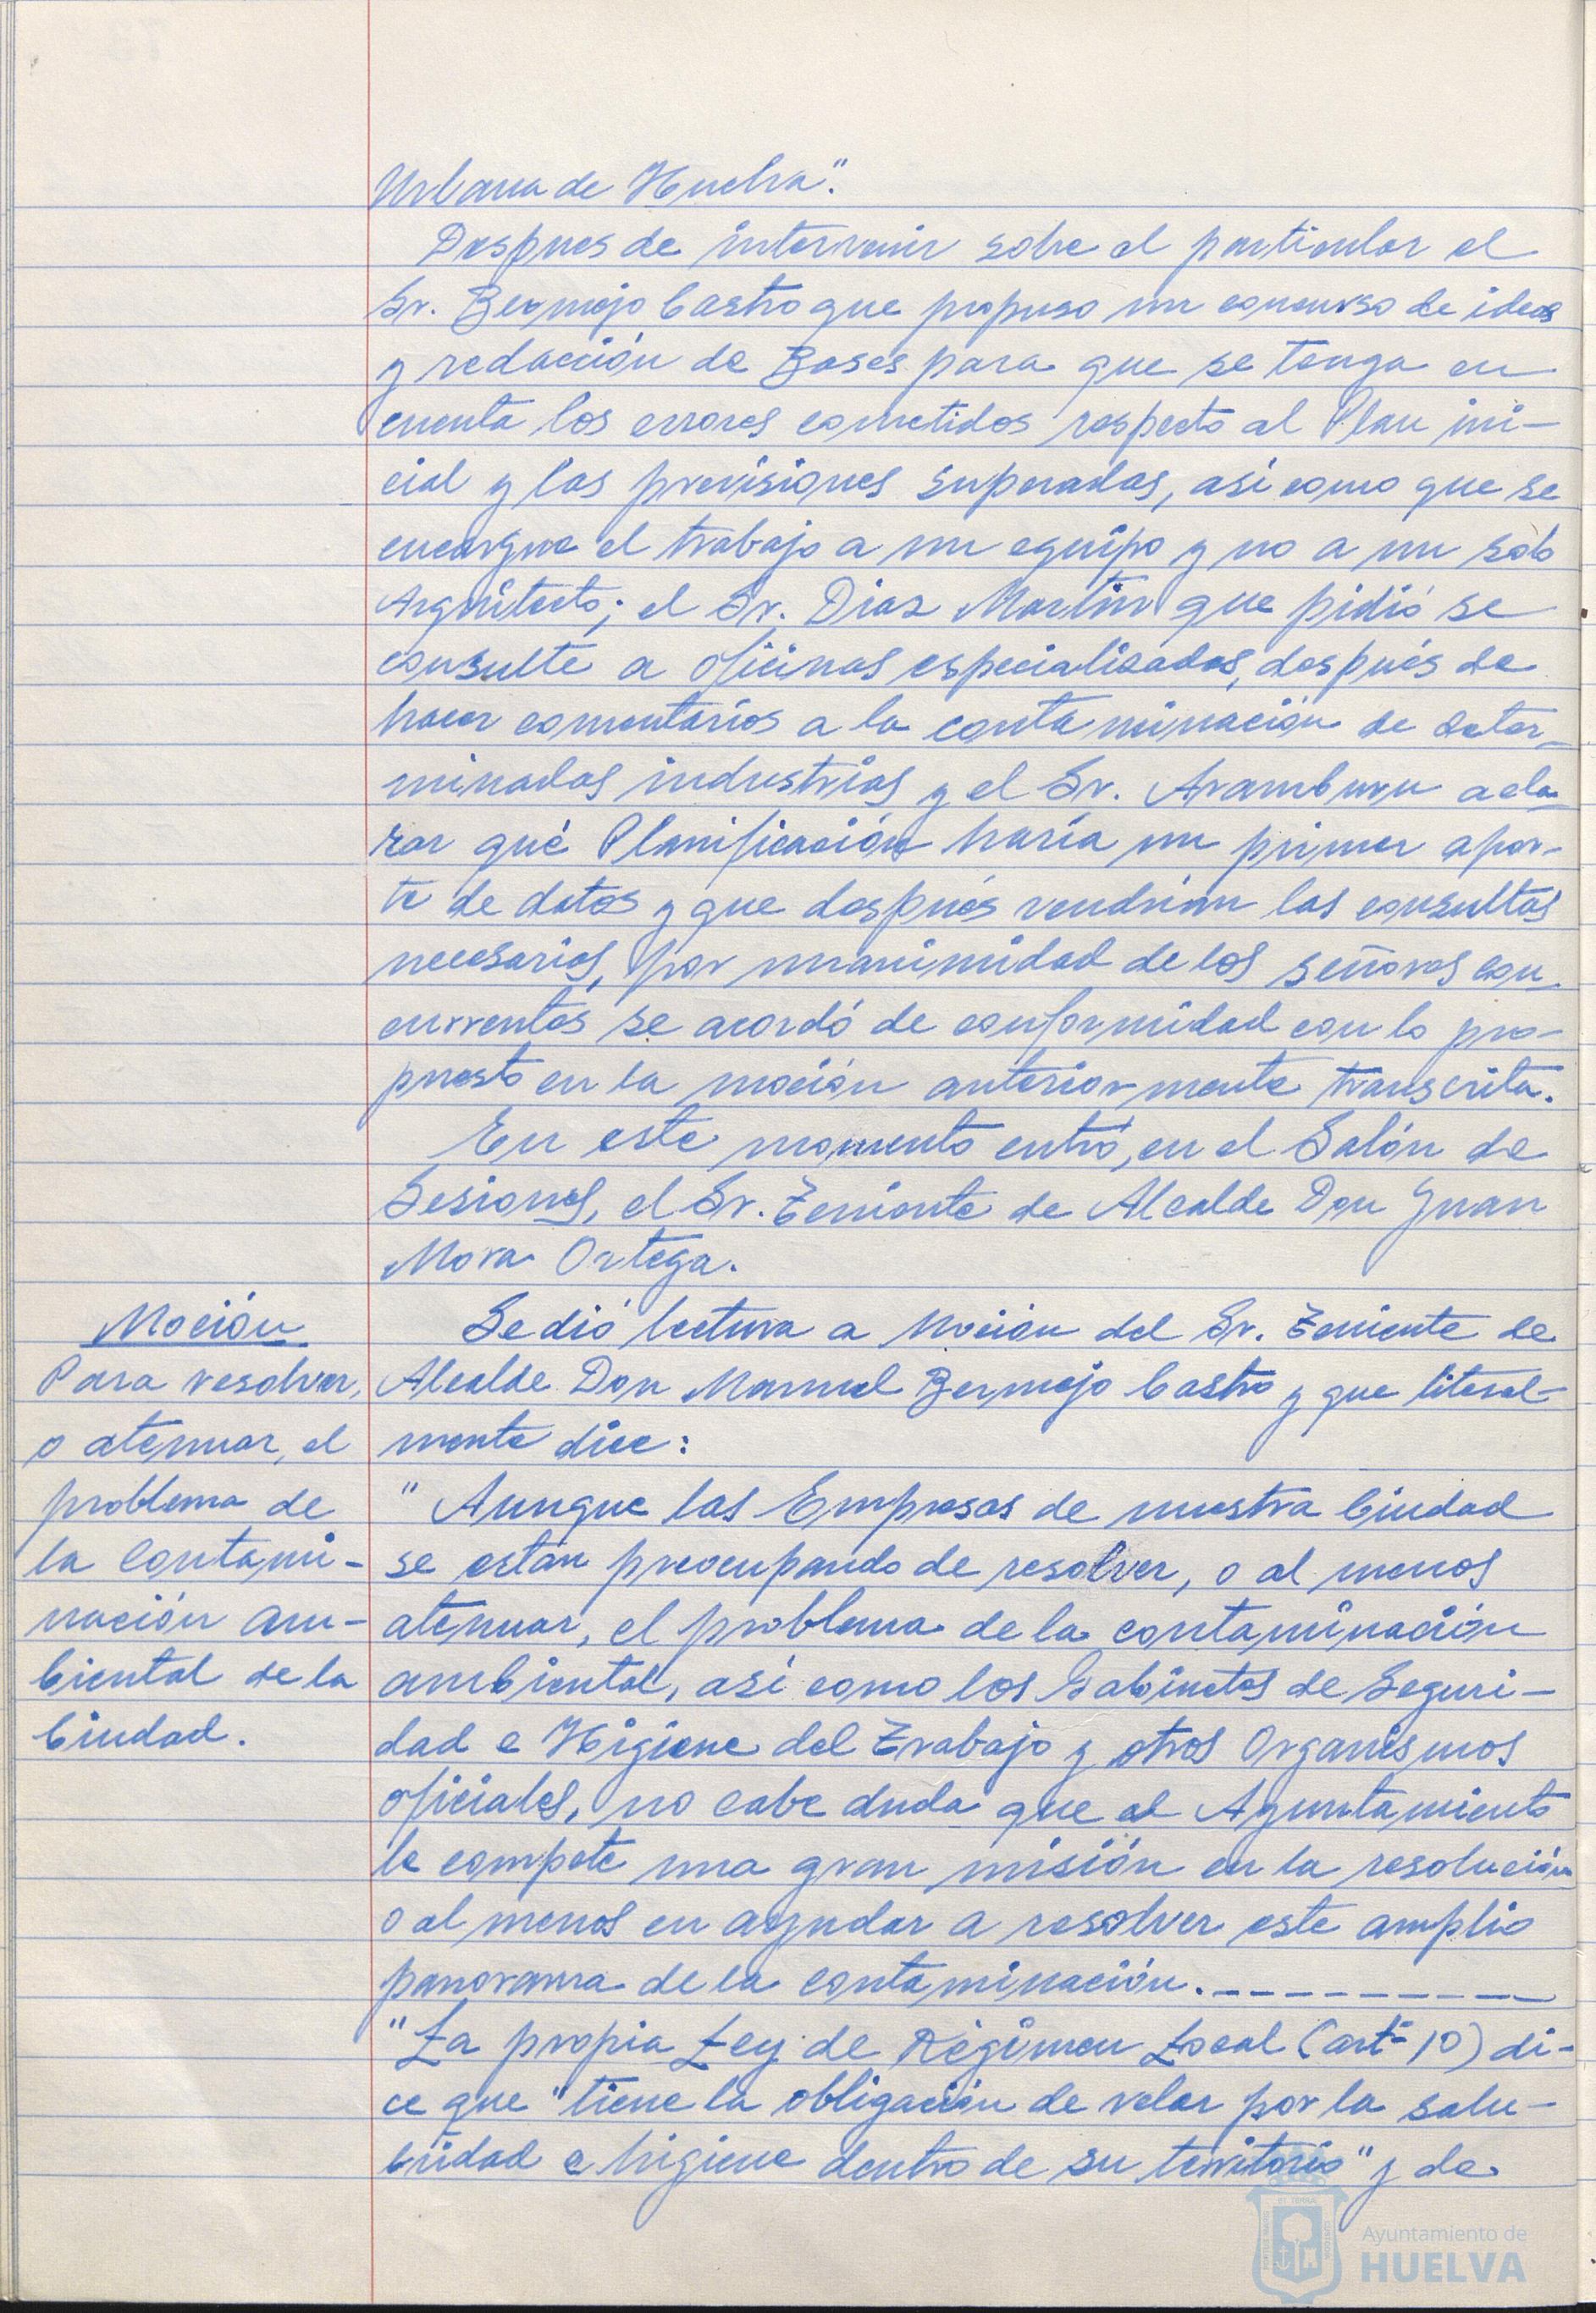 Urbana de Huelva".
Despues de intervenir sobre el particular el
Sr. Bermejo Castro que propuso un concurso de ideas
y redacción de Bases para que se tenga en
cuenta los errores cometidos respecto al Plan ini-
cial y las previsiones superadas, así como que se
encargue el trabajo a un equipo y no a un solo
Arquitecto; el Sr. Diaz Martin que pidió se
consulte a oficinas especializadas, después de
hacer comentarios a la contaminación de deter-
minadas industrias y el Sr. Aramburu acla-
rar qué Planificación haría un primer apor-
te de datos y que después vendrían las consultas
necesarias, por unanimidad de los señores con-
currentes se acordó de conformidad con lo pro-
puesto en la moción anteriormente transcrita.
En este momento entró, en el Salón de
Sesiones, el Sr. Teniente de Alcalde Don Juan
Mora Ortega.
Moción
Para resolver,
o atenuar, el
problema de
la Contami-
nación am-
biental de la
Ciudad.
Se dió lectura a Moción del Sr. Teniente de
Alcalde Don Manuel Bermejo Castro y que literal-
mente dice:
"Aunque las Empresas de nuestra Ciudad
se están preocupando de resolver, o al menos
atenuar, el problema de la contaminación
ambiental, así como los Gabinetes de Seguri-
dad e Higiene del Trabajo y otros Organismos
oficiales, no cabe duda que al Ayuntamiento
le compete una gran misión en la resolución
o al menos en ayudar a resolver este amplio
panorama de la contaminación. _ _ _ _ _ _ _ _ _
"La propia Ley de Régimen Local (artº 10) di-
ce que "tiene la obligación de velar por la salu-
bridad e higiene dentro de su territorio" y de
Ayuntamiento de
HUELVA